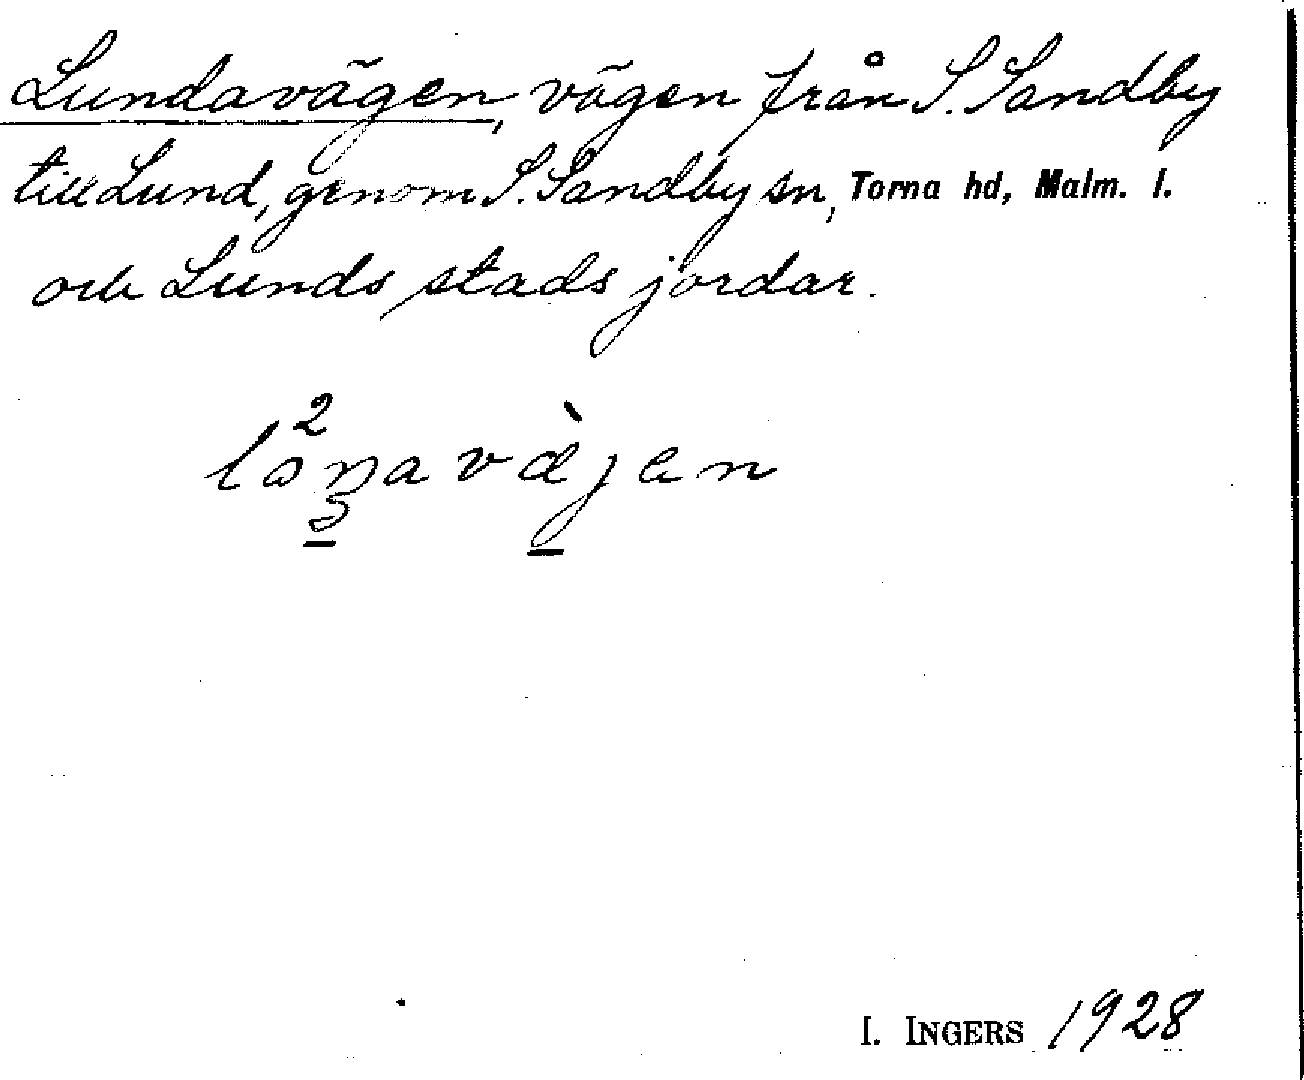 Lundavägen, vägen från S. Sandby
till Lund, genom S. Sandby sn, Torna hd, Malm. l.
och Lunds stads jordar.
I. INGERS 1928